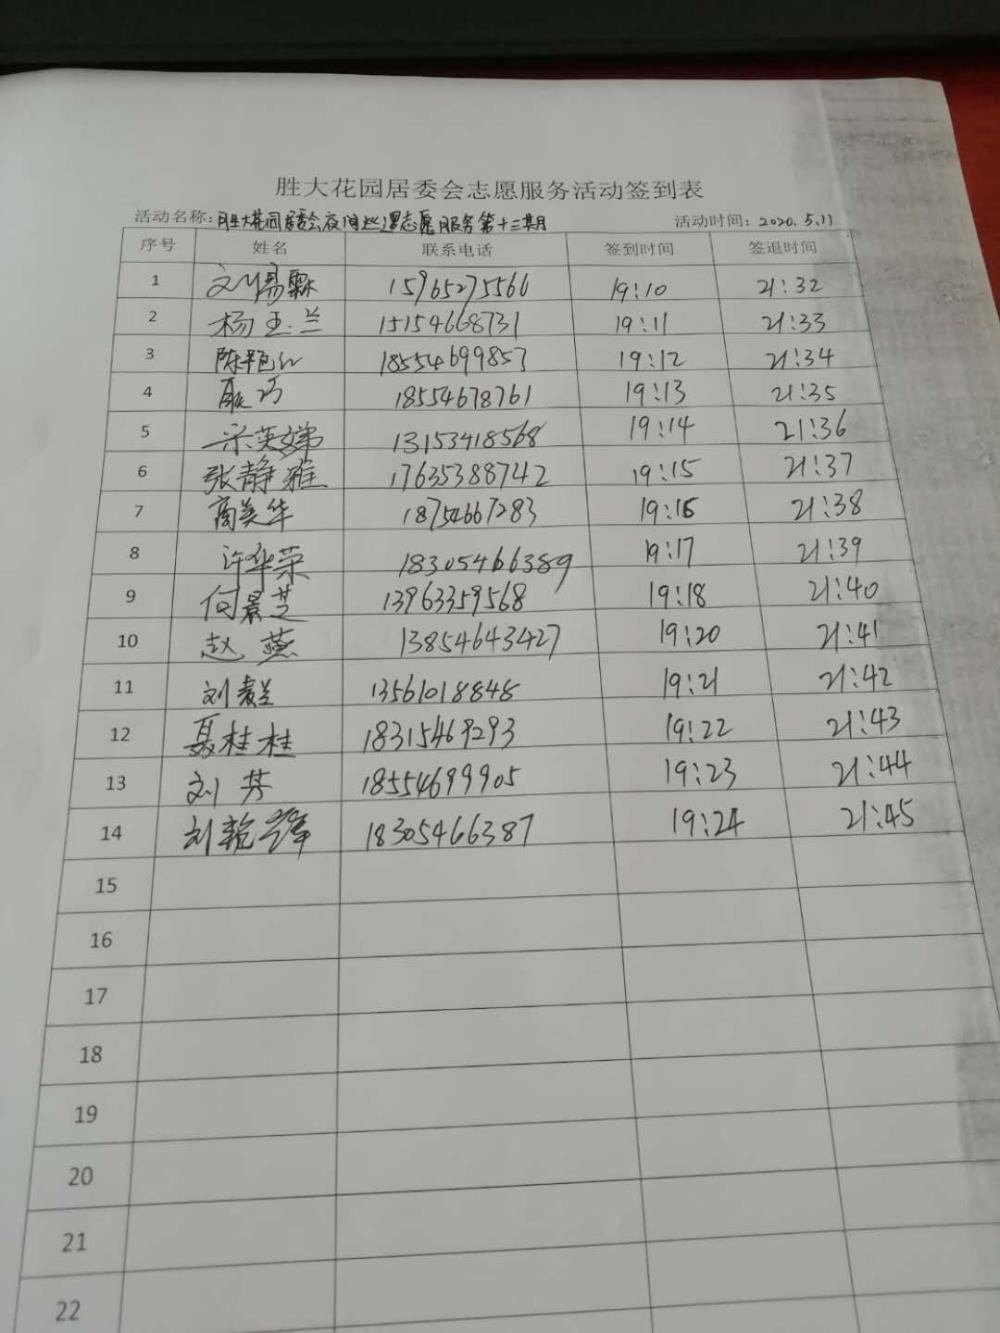 胜大花园居委会志愿服务活动签到表
活动名称：胜大花园居委会夜间巡逻志愿服务第十三期 活动时间：2020.5.11
序号 姓名 联系电话 签到时间 签退时间
1 刘易霖 15965275566 19:10 21:32
2 杨玉兰 15154668731 19:11 21:33
3 陈艳红 18554699857 19:12 21:34
4 聂巧 18554678761 19:13 21:35
5 宋英娣 13153418568 19:14 21:36
6 张静雅 17635388742 19:15 21:37
7 高美华 18754667283 19:16 21:38
8 许华荣 18305466389 19:17 21:39
9 何景芝 13963359568 19:18 21:40
10 赵燕 13854643427 19:20 21:41
11 刘 13561018848 19:21 21:42
12 聂桂桂 18315469293 19:22 21:43
13 刘芳 18554699905 19:23 21:44
14 刘艳 18305466387 19:24 21:45
15
16
17
18
19
20
21
22